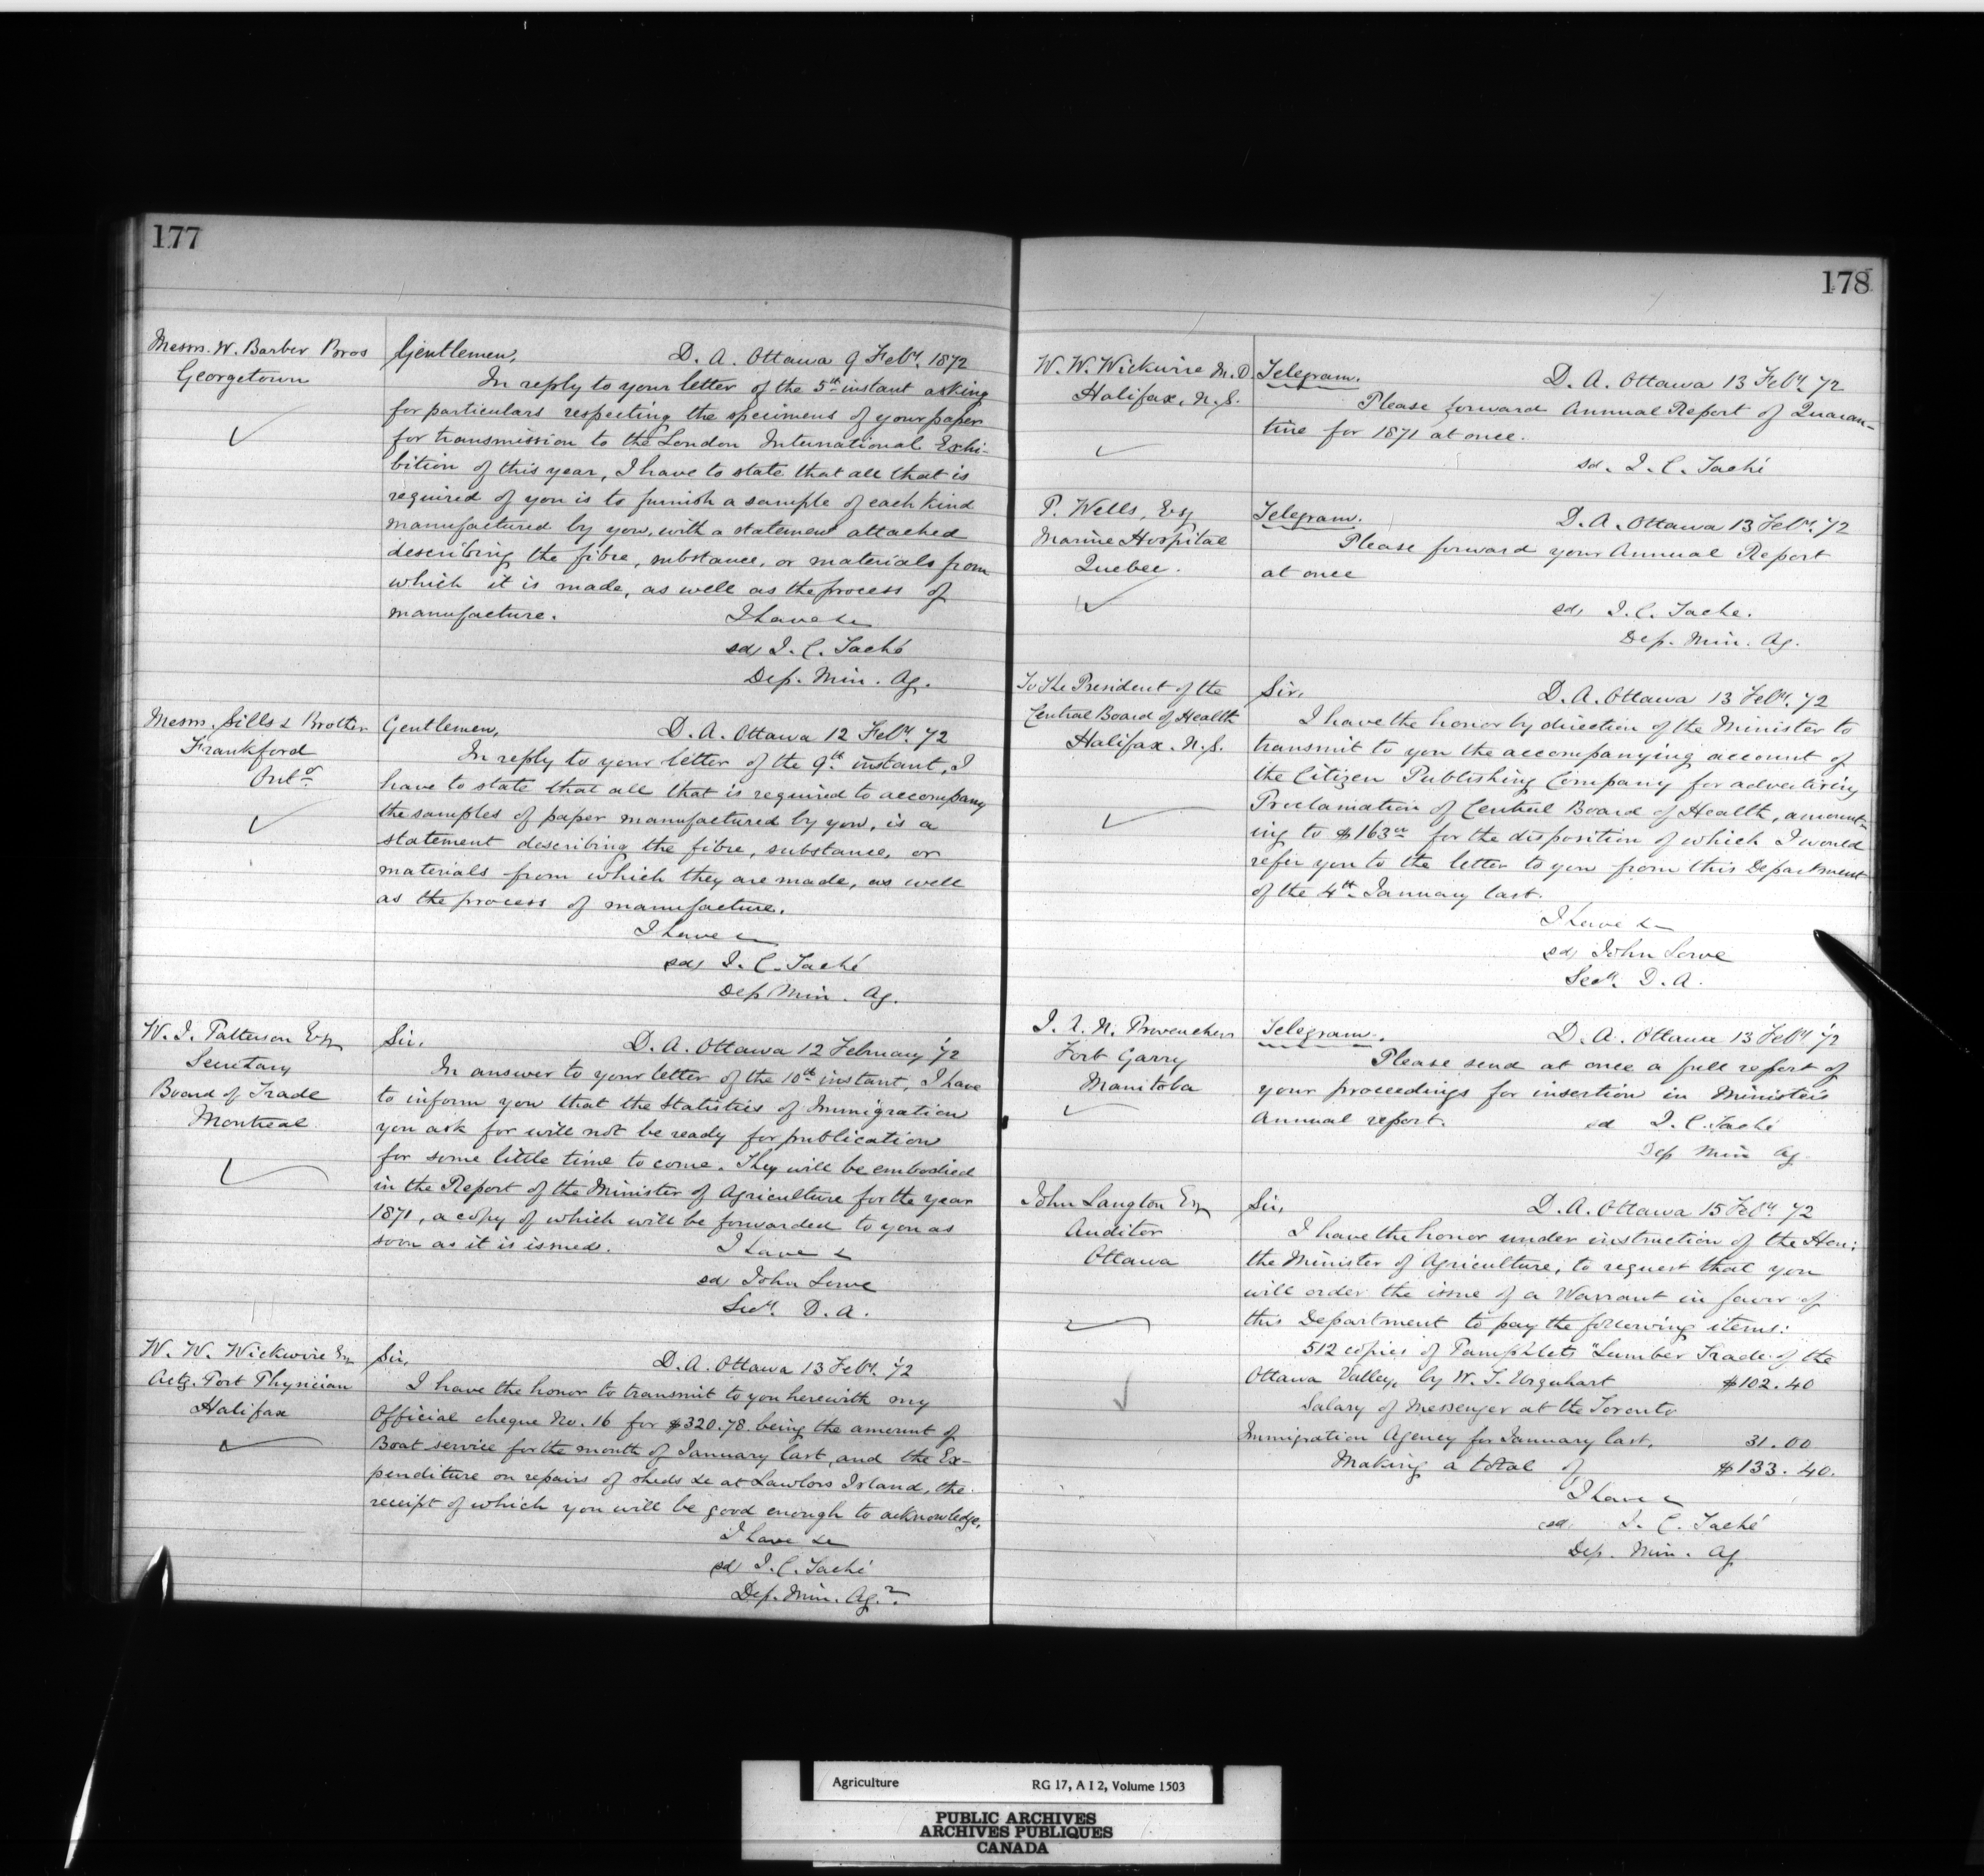 177
Messrs. W. Barber Bros
Georgetown
Gentlemen, D. A. Ottawa 9 Feby. 1872
In reply to your letter of the 5th instant asking
for particulars respecting the specimens of your paper
for transmission to the London International Exhi-
bition of this year, I have to state that all that is
required of you is to furnish a sample of each kind
manufactured by you, with a statement attached
describing the fibre, substance, or materials from
which it is made, as well as the process of
manufacture. I have &c
sd/ J. C. Taché
Dep. Min. Ag.
Messrs. Sills & Brother
Frankford
Onto.
Gentlemen, D. A. Ottawa 12 Feby. 72
In reply to your letter of the 9th instant, I
have to state that all that is required to accompany
the samples of paper manufactured by you, is a
statement describing the fibre, substance, or
materials from which they are made, as well
as the process of manufacture.
I have &c
sd/ J. C. Taché
Dep Min. Ag.
W. J. Patterson Esq
Secretary
Board of Trade
Montreal
Sir, D. A. Ottawa 12 February '72
In answer to your letter of the 10th instant, I have
to inform you that the Statistics of Immigration
you ask for will not be ready for publication
for some little time to come. They will be embodied
in the Report of the Minister of Agriculture for the year
1871, a copy of which will be forwarded to you as
soon as it is issued. I have &
sd/ John Lowe
Secy. D. A.
W. W. Wickwire Esq
Actg. Port Physician
Halifax
Sir, D. A. Ottawa 13 Feby. '72
I have the honor to transmit to you herewith my
Official cheque No. 16 for $320.78 being the amount of
Boat service for the month of January last, and the Ex-
penditure on repairs of sheds &c at Lawlors Island, the
receipt of which you will be good enough to acknowledge.
I have &c
sd/ J. C. Taché
Dep. Min. Ag.
178
W. W. Wickwire M. D.
Halifax, N. S.
Telegram. D. A. Ottawa 13 Feby. 72
Please forward Annual Report of Quaran-
tine for 1871 at once.
sd. J. C. Taché
P. Wells, Esq
Marine Hospital
Quebec.
Telegram. D. A. Ottawa 13 Feby. 72
Please forward your Annual Report
at once
sd/ J. C. Tache.
Dep. Min. Ag.
To The President of the
Central Board of Health
Halifax. N. S.
Sir, D. A. Ottawa 13 Feby. 72
I have the honor by direction of the Minister to
transmit to you the accompanying account of
the Citizen Publishing Company for advertising
Proclamation of Central Board of Health, amount-
ing to $163 00 for the disposition of which I would
refer you to the letter to you from this Department
of the 4th January last.
I have &
sd/ John Lowe
Secy. D. A.
J. A. N. Provencher
Fort Garry
Manitoba
Telegram. D. A. Ottawa 13 Feby '72
Please send at once a full report of
your proceedings for insertion in Minister's
Annual report. sd J. C. Taché
Dep Min Ag.
John Langton Esq
Auditor
Ottawa
Sir, D. A. Ottawa 15 Feby. 72
I have the honor under instruction of the Hon:
the Minister of Agriculture, to request that you
will order the issue of a Warrant in favor of
this Department to pay the following items:
512 copies of Pamphlets "Lumber Trade of the
Ottawa Valley, by W. T. Urquhart $102.40
Salary of Messenger at the Toronto
Immigration Agency for January last, 31.00
Making a total of $133.40.
I have &
sd. J. C. Taché
Dep. Min. Ag
Agriculture RG 17, A I 2, Volume 1503
PUBLIC ARCHIVES
ARCHIVES PUBLIQUES
CANADA